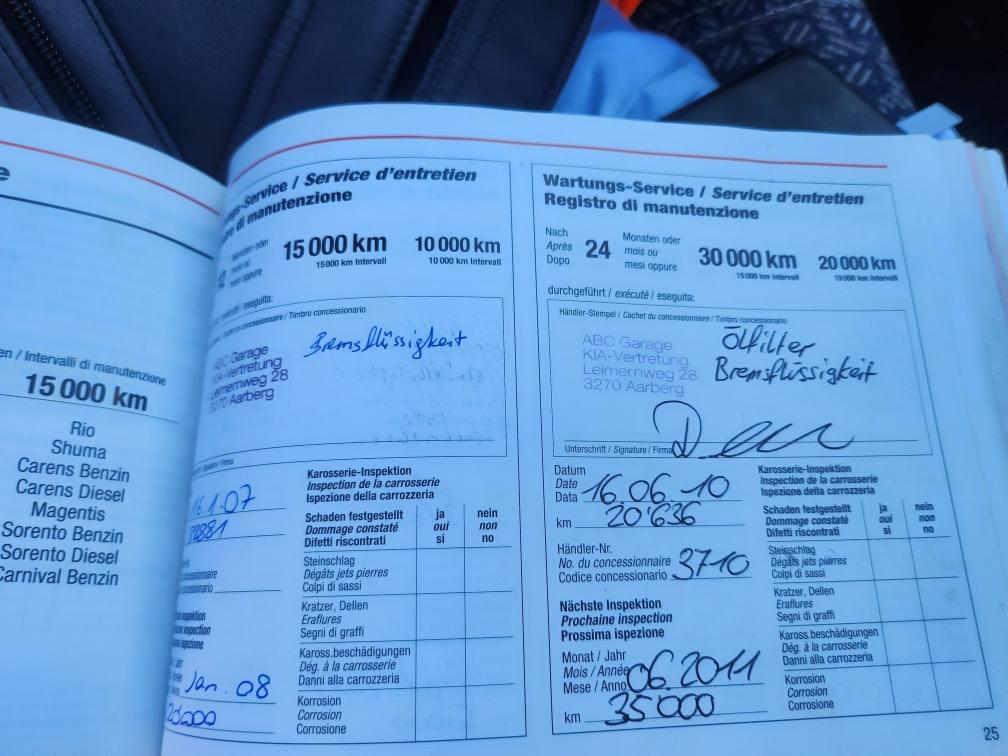 e
en / Intervalli di manutenzione
15 000 km
Rio
Shuma
Carens Benzin
Carens Diesel
Magentis
Sorento Benzin
Sorento Diesel
Carnival Benzin
ngs-Service / Service d'entretien
di manutenzione
Monaten oder
mois ou
mesi oppure
15 000 km
15 000 km Intervall
10 000 km
10 000 km Intervall
/ exécuté / eseguita:
/ Cachet du concessionnaire / Timbro concessionario
ABC Garage
KIA-Vertretung
Leimernweg 28
3270 Aarberg
Bremsflüssigkeit
/ Signature / Firma
16.1.07
Jan. 08
Karosserie-Inspektion
Inspection de la carrosserie
Ispezione della carrozzeria
Schaden festgestellt ja nein
Dommage constaté oui non
Difetti riscontrati si no
Steinschlag
Dégâts jets pierres
Colpi di sassi
Kratzer, Dellen
Eraflures
Segni di graffi
Kaross.beschädigungen
Dég. à la carrosserie
Danni alla carrozzeria
Korrosion
Corrosion
Corrosione
Wartungs-Service / Service d'entretien
Registro di manutenzione
Nach
Après
Dopo
24
Monaten oder
mois ou
mesi oppure
30 000 km
15 000 km Intervall
20 000 km
10 000 km Intervall
durchgeführt / exécuté / eseguita:
Händler-Stempel / Cachet du concessionnaire / Timbro concessionario
ABC Garage
KIA-Vertretung
Leimernweg 28
3270 Aarberg
Ölfilter
Bremsflüssigkeit
Unterschrift / Signature / Firma
Datum
Date
Data 16.06.10
km 20'636
Händler-Nr.
No. du concessionnaire
Codice concessionario 3710
Nächste Inspektion
Prochaine inspection
Prossima ispezione
Monat / Jahr
Mois / Année
Mese / Anno 06.2011
km 35'000
Karosserie-Inspektion
Inspection de la carrosserie
Ispezione della carrozzeria
Schaden festgestellt ja nein
Dommage constaté oui non
Difetti riscontrati si no
Steinschlag
Dégâts jets pierres
Colpi di sassi
Kratzer, Dellen
Eraflures
Segni di graffi
Kaross.beschädigungen
Dég. à la carrosserie
Danni alla carrozzeria
Korrosion
Corrosion
Corrosione
25